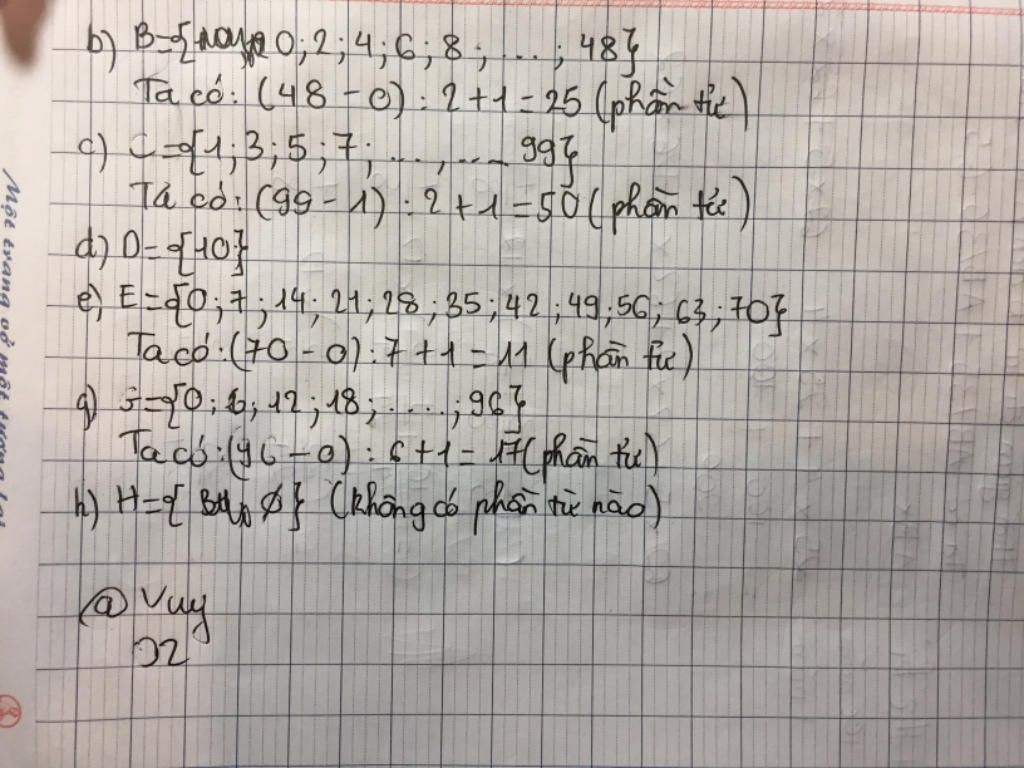 b) B={0;2;4;6;8;...;48}
Ta có: (48-0):2+1=25 (phần tử)
c) C={1;3;5;7;...,... 99}
Ta có: (99-1):2+1=50 (phần tử)
d) D={10}
e) E={0;7;14;21;28;35;42;49;56;63;70}
Ta có:(70-0):7+1=11 (phần tử)
g) G={0;6;12;18;....;96}
Ta có:(96-0):6+1=17(phần tử)
h) H={ ∅} (không có phần tử nào)
@ Vuy
Một trang vở một tương lai